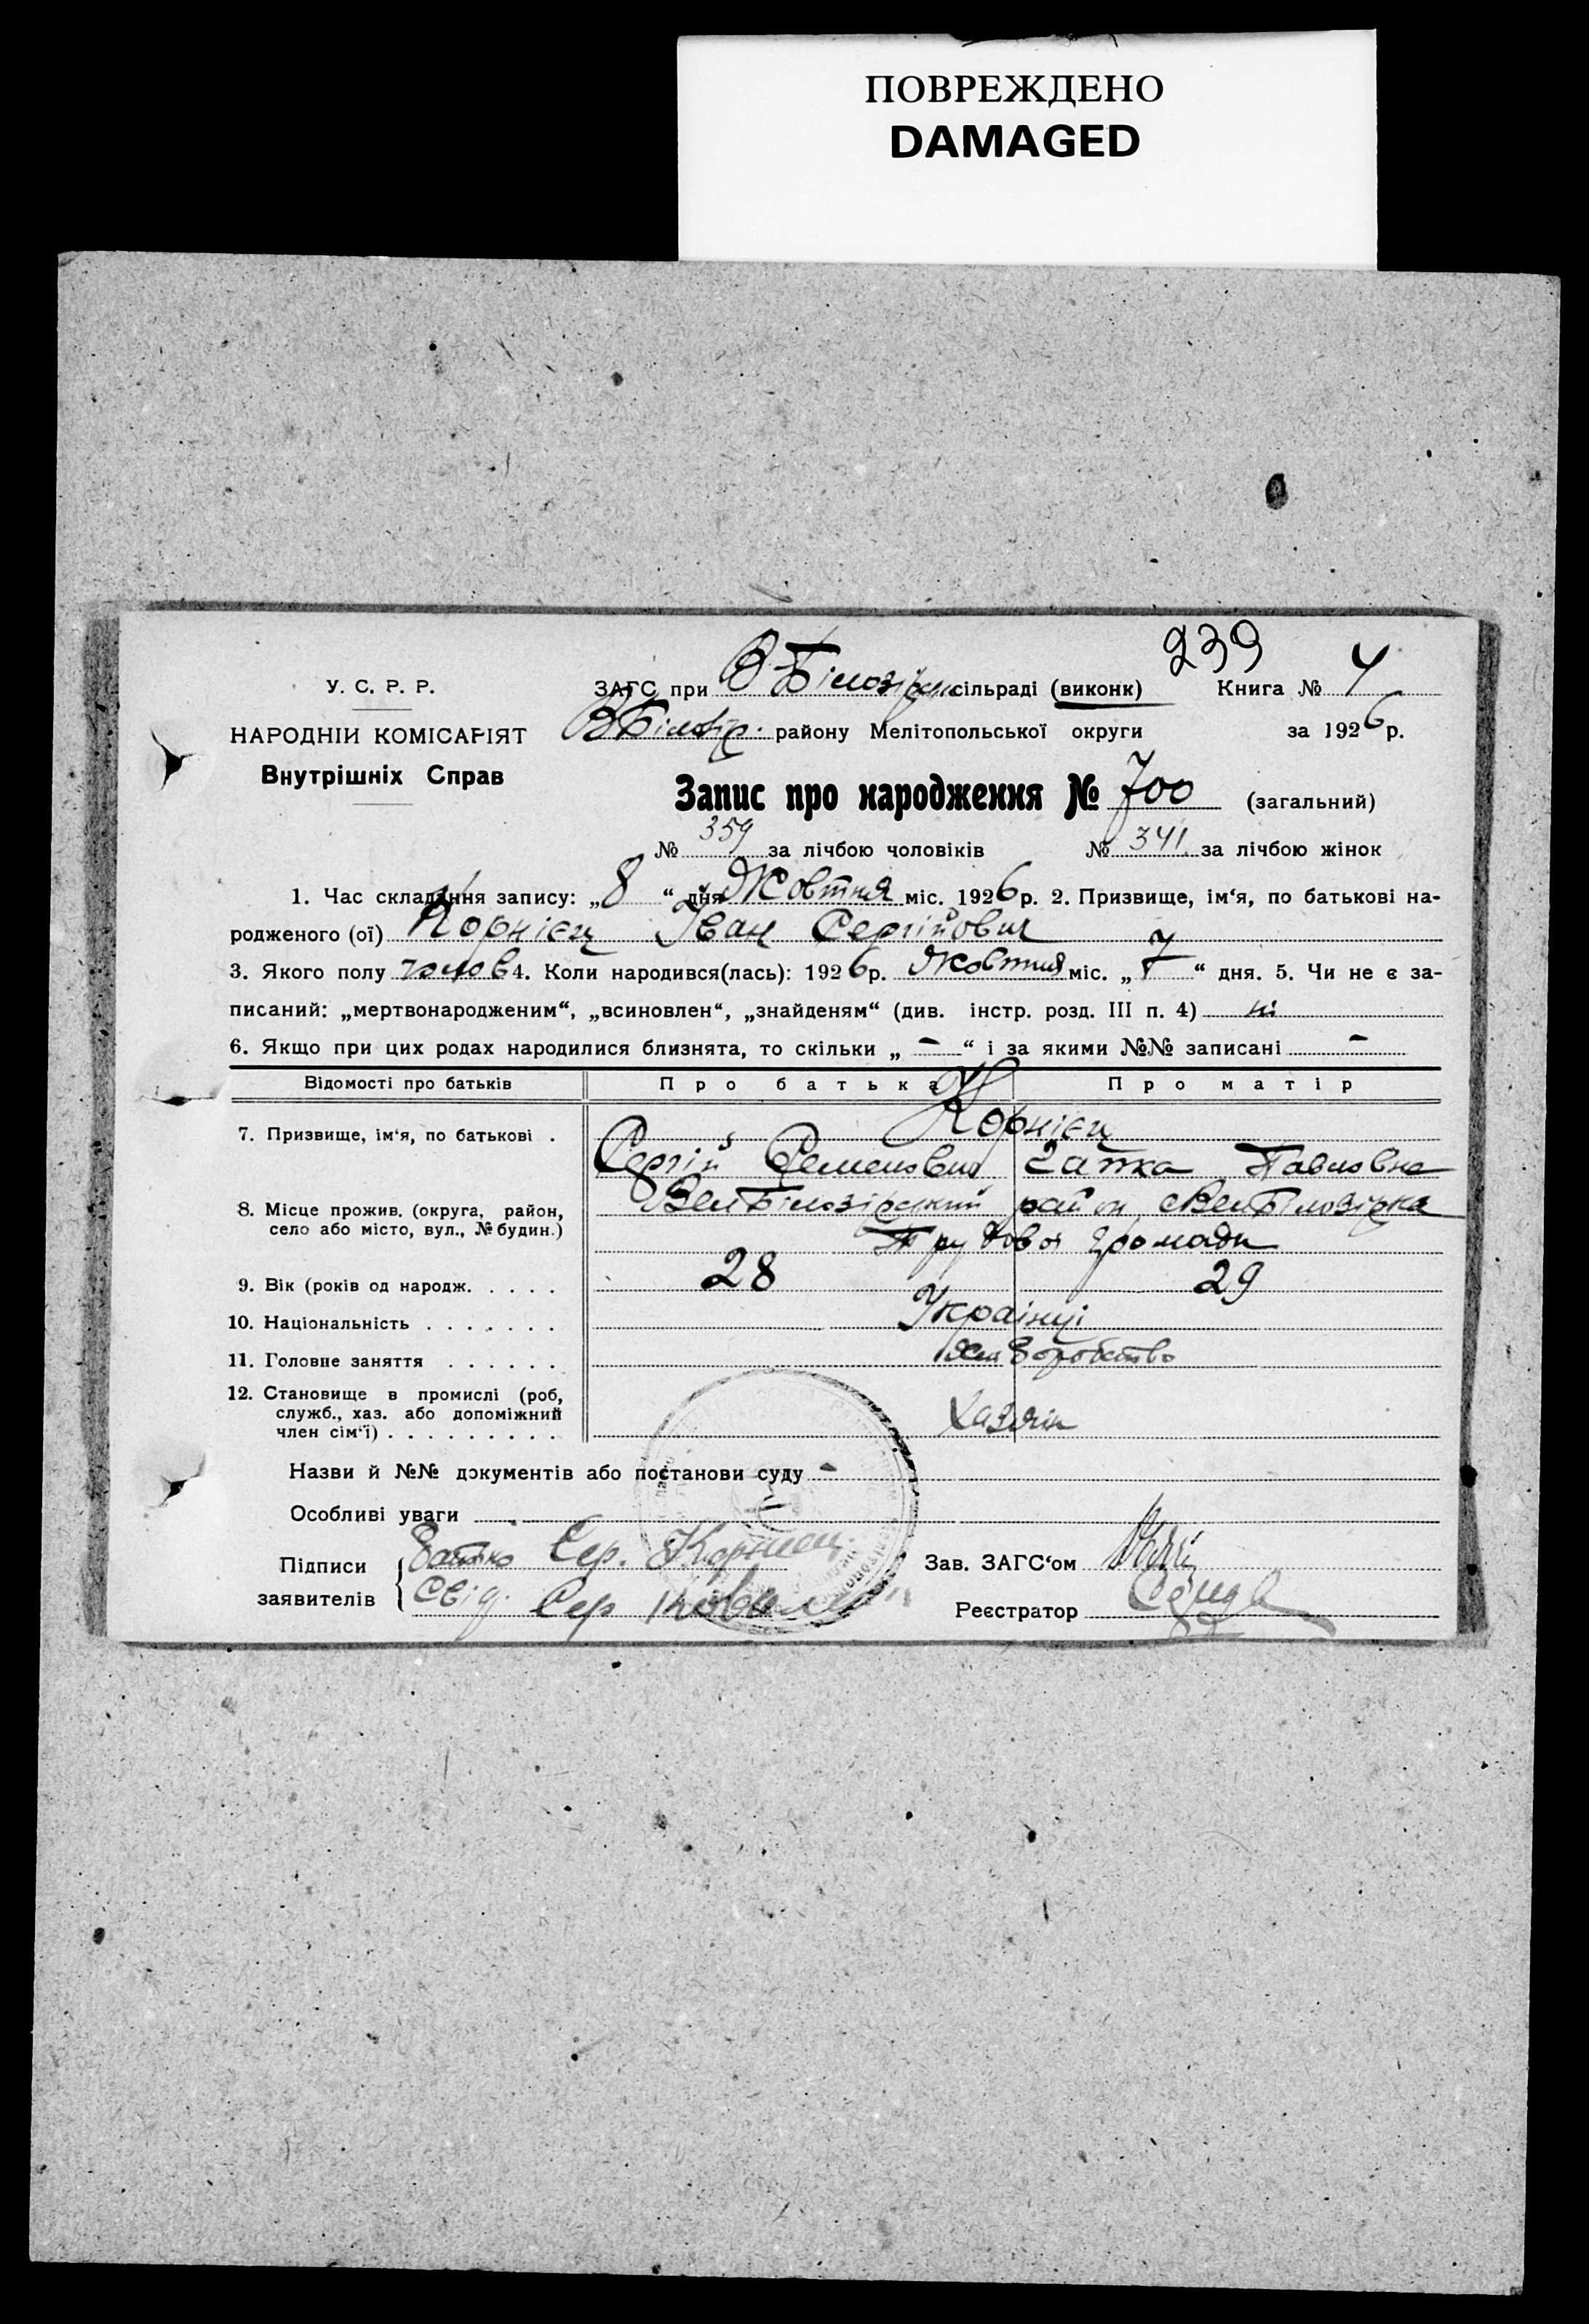 ПОВРЕЖДЕНО
DAMAGED
239
У. С. Р. Р.
ЗАГС при В-Білозірск сільраді (виконк) Книга № 4
НАРОДНІЙ КОМІСАРІЯТ
В Білозір. району Мелітопольської округи за 1926 р.
Внутрішніх Справ
Запис про народження № 700 (загальний)
№ 359 за лічбою чоловіків № 341 за лічбою жінок
1. Час складання запису: „8“ дня Жовтня міс. 1926 р. 2. Призвище, ім‘я, по батькові на-
родженого (ої) Корнієц Іван Сергійович
3. Якого полу чолов 4. Коли народився(лась): 1926 р. Жовтня міс. „7“ дня. 5. Чи не є за-
писаний: „мертвонародженим“, „всиновлен“, „знайденям“ (див. інстр. розд. III п. 4) ні
6. Якщо при цих родах народилися близнята, то скільки „ - “ і за якими №№ записані -
Відомості про батьків Про батька Про матір
7. Призвище, ім‘я, по батькові . Корнієц
Сергій Семенович Гапка Павловна
8. Місце прожив. (округа, район, село або місто, вул., № будин.) Вел Білозірський район, Вел Білозірка
Трудової громади
9. Вік (років од народж. . . . . 28 29
10. Національність . . . . . . . Українці
11. Головне заняття . . . . . . хліборобство
12. Становище в промислі (роб,
служб., хаз. або допоміжний
член сім‘ї) . . . . . . . . . Хазяїн
Назви й №№ документів або постанови суду -
Особливі уваги
Підписи заявителів { Батько Сер. Корниец
Свід. Сер Коваль
Зав. ЗАГС‘ом
Реєстратор